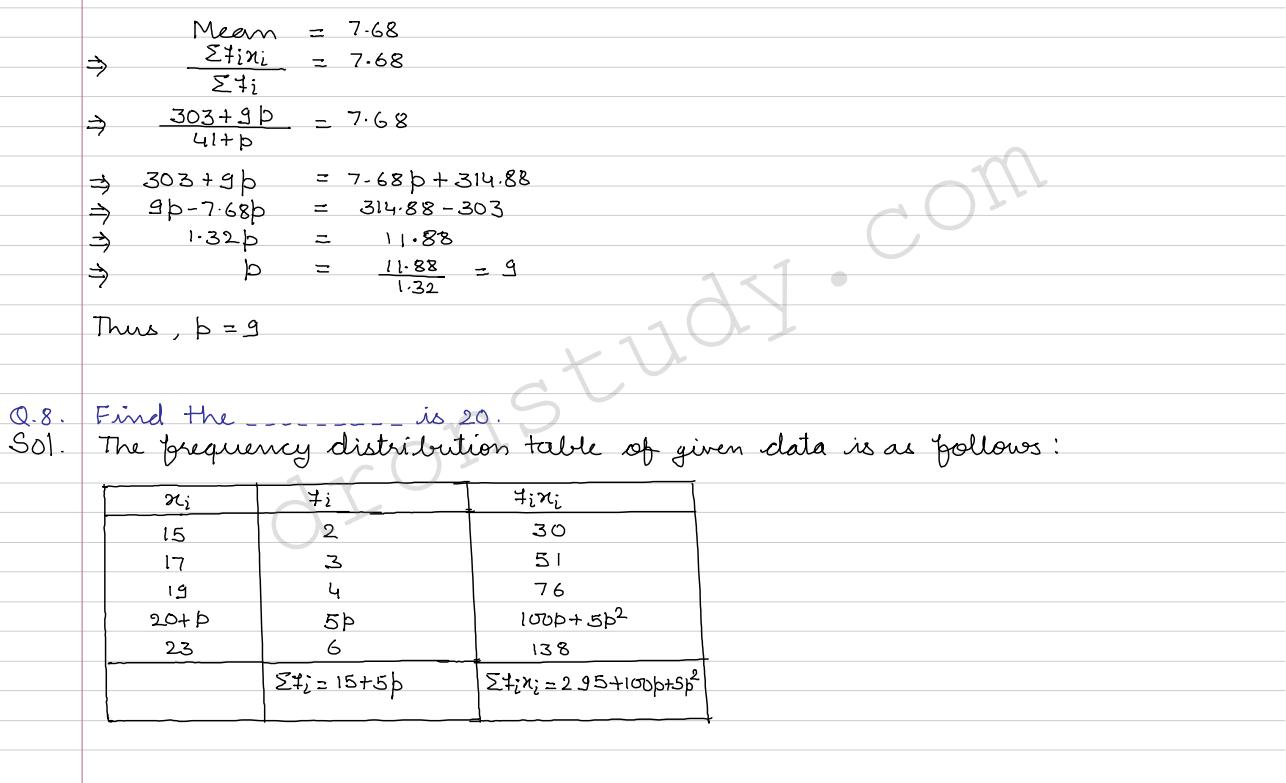 Mean = 7.68
⇒ Σfixi / Σfi = 7.68
⇒ 303+9p / 41+p = 7.68
⇒ 303+9p = 7.68p+314.88
⇒ 9p-7.68p = 314.88-303
⇒ 1.32p = 11.88
⇒ p = 11.88 / 1.32 = 9
Thus, p = 9
Q.8. Find the _ _ _ _ _ _ _ _ _ is 20.
Sol. The frequency distribution table of given data is as follows:
xi fi fixi
15 2 30
17 3 51
19 4 76
20+p 5p 100p+5p²
23 6 138
Σfi = 15+5p Σfixi = 295+100p+5p²
dronstudy.com